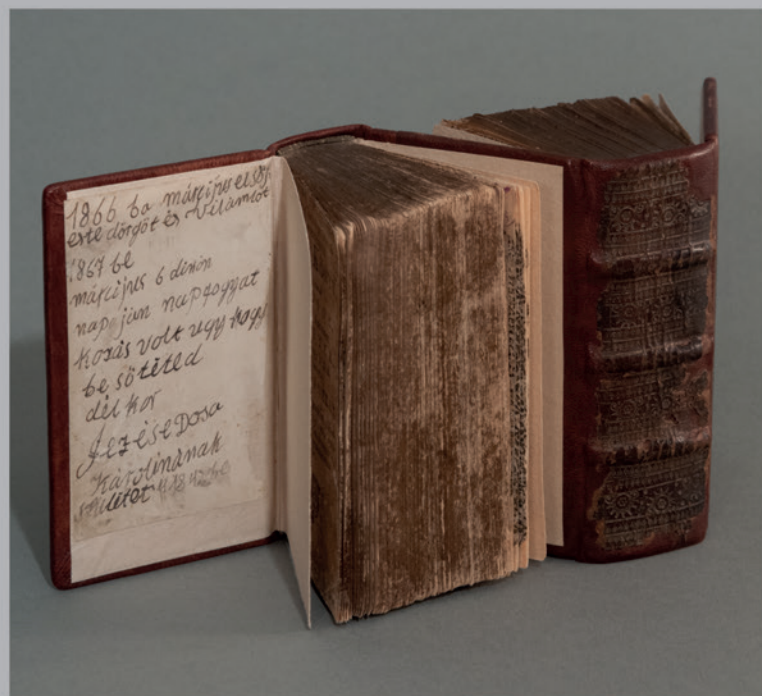 1866 ba március első
este dörgöt és Vilámlot
1867 be
március 6 dikán
nap ján napfogyat
kozás volt ugy hogy
be sötéted
dél kor
Jez ése Dosa
Karolinának